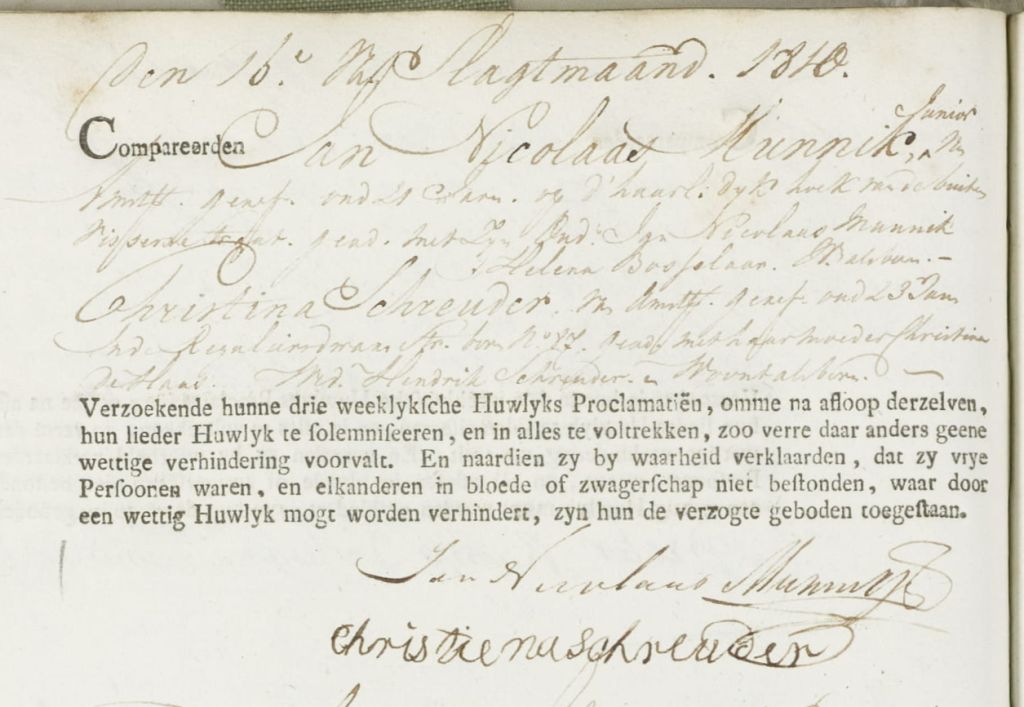 Den 16.e Slagtmaand. 1810.
Compareerden Jan Nicolaas Munnik, Junior
Amst. geref. oud 21 Jaaren. op d'haarl: dyk hoek van de buiten
gead. met zyn Jan Nicolaas Munnik
& Helena Bosselaar.
Christina Schreuder. van Amst. geref. oud 23 Jaar
Inde Reguliersdwars Str. No 27. geads. met haar moeder Christina
Wed. Hendrik Schreuder.
Verzoekende hunne drie weeklyksche Huwlyks Proclamatiën, omme na afloop derzelven,
hun lieder Huwlyk te solemniseeren, en in alles te voltrekken, zoo verre daar anders geene
wettige verhindering voorvalt. En naardien zy by waarheid verklaarden, dat zy vrye
Persoonen waren, en elkanderen in bloede of zwagerschap niet bestonden, waar door
een wettig Huwlyk mogt worden verhindert, zyn hun de verzogte geboden toegestaan.
Jan Nicolaas Munnik
christiena schreuder